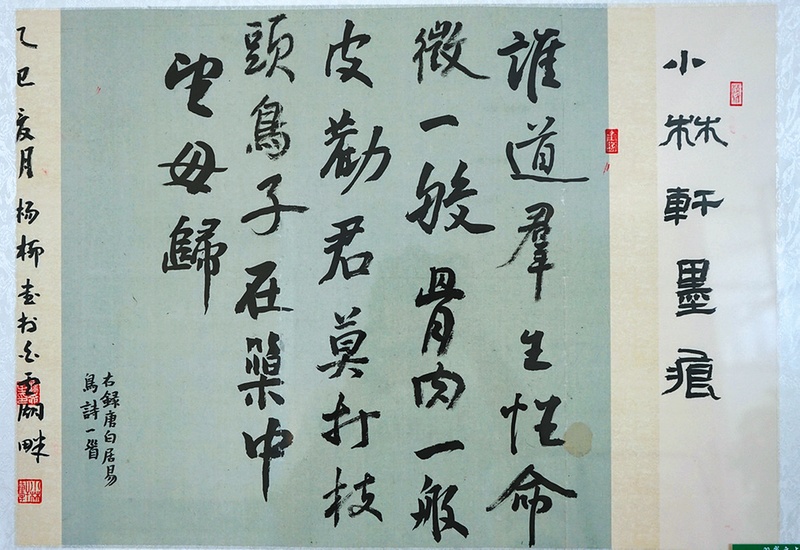 小林軒墨痕
誰道羣生性命
微一般骨肉一般
皮勸君莫打枝
頭鳥子在巢中
望母歸
右録唐白居易
鳥詩一首
乙巳夏月杨柳書於閣畔